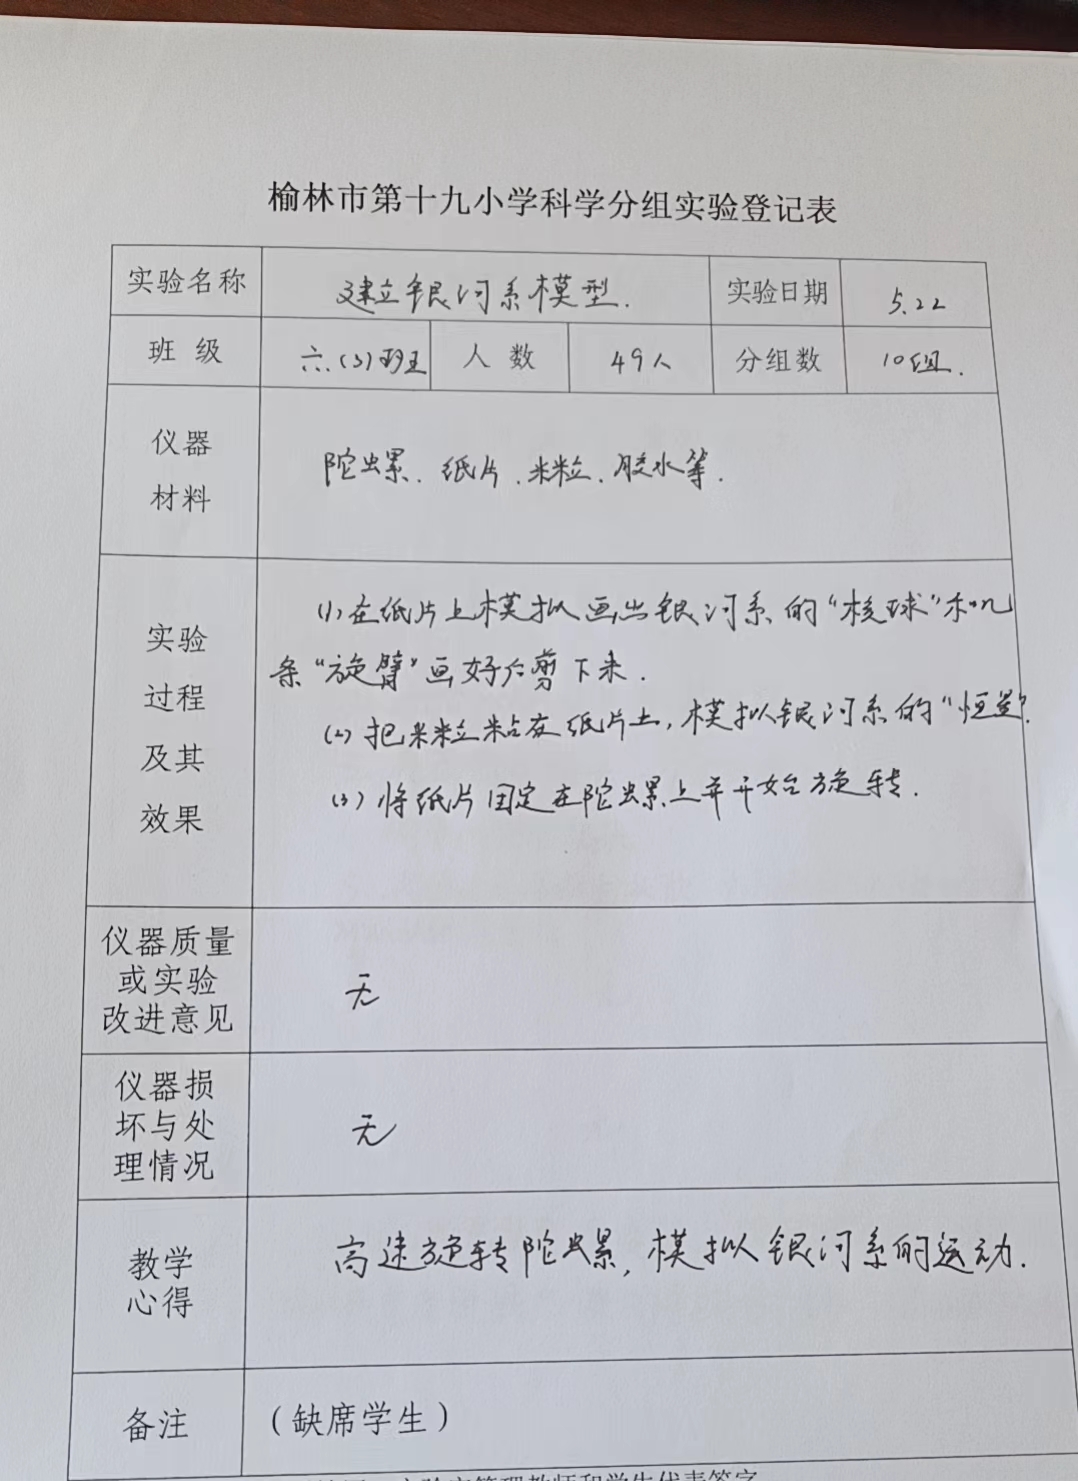 榆林市第十九小学科学分组实验登记表
实验名称 建立银河系模型. 实验日期 5.22
班 级 六.(3)班 人 数 49人 分组数 10组.
仪器
材料
陀螺、纸片、米粒、胶水等.
实验
过程
及其
效果
(1)在纸片上模拟画出银河系的“核球”和几
条“旋臂”画好后剪下来.
(2)把米粒粘在纸片上,模拟银河系的“恒星”.
(3)将纸片固定在陀螺上并开始旋转.
仪器质量
或实验
改进意见
无
仪器损
坏与处
理情况
无
教学
心得
高速旋转陀螺,模拟银河系的运动.
备注 (缺席学生)
实验室管理教师和学生代表签字